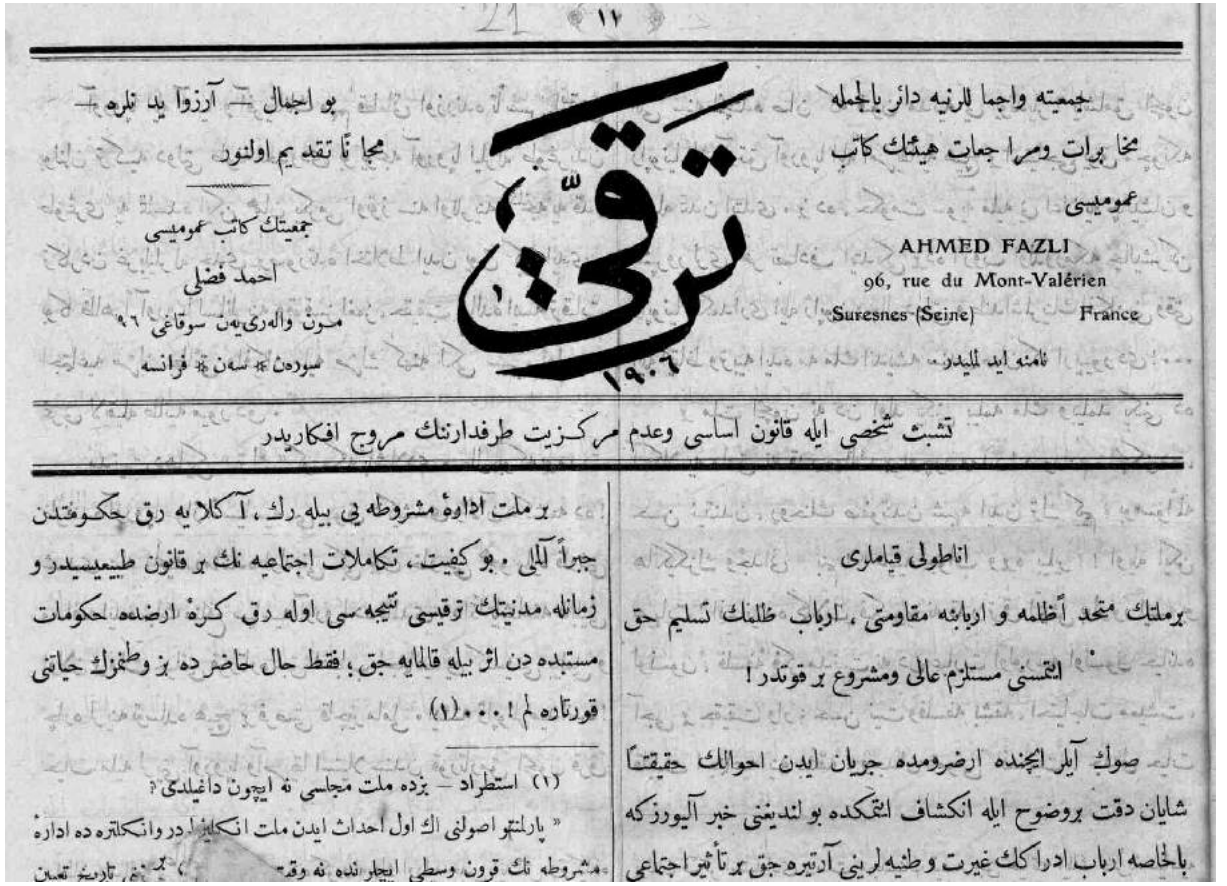 ١١
جمعيته واجماللرنيه دائر بالجمله
مخابرات ومراجعات هيئتك كاتب
عموميسى
AHMED FAZLI
96, rue du Mont-Valérien
Suresnes (Seine) France
نامنه ايدلمليدر
ترقّى
١٩٠٦
بو اجمال — آرزو ايدنلره —
مجاناً تقديم اولنور
جمعيتك كاتب عموميسى
احمد فضلى
مون والهرىهن سوقاغى ٩٦
سورهن * سهن * فرانسه
تشبث شخصى ايله قانون اساسى وعدم مركزيت طرفدارنك مروج افكاريدر
اناطولى قياملرى
برملتك متحداً ظلمه و اربابنه مقاومتى ، ارباب ظلمك تسليم حق
ايتمسنى مستلزم عالى ومشروع بر قوتدر !
صوك آيلر ايچنده ارضرومده جريان ايدن احوالك حقيقتاً
شايان دقت بروضوح ايله انكشاف ايتمكده بولنديغنى خبر آليورزكه
بالخاصه ارباب ادراكك غيرت وطنيه لرينى آرتيره جق بر تأثير اجتماعى
بر ملت ادارهٔ مشروطه يى بيله رك ، آكلايه رق حكومتدن
جبراً آلملى . بو كيفيت ، تكاملات اجتماعيه نك بر قانون طبيعيسيدر و
زمانله مدنيتك ترقيسى نتيجه سى اوله رق كرهٔ ارضده حكومات
مستبده دن اثر بيله قالمايه جق ؛ فقط حال حاضرده بز وطنمزك حياتنى
قورتاره لم ! . . . (١)
(١) استطراد — بزده ملت مجلسى نه ايچون داغيلدى ؟
« پارلمنتو اصولنى اك اول احداث ايدن ملت انكليزلردر وانكلتره ده ادارهٔ
مشروطه نك قرون وسطى ايچلرنده نه تاريخ تعيين